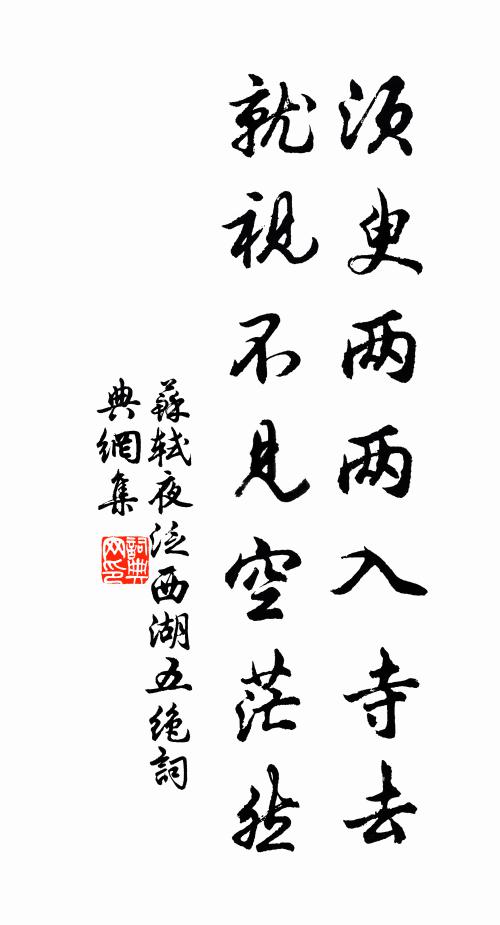 須臾两两入寺去
就視不見空茫然
蘇軾夜泛西湖五絶詞
典網集
詞典
网印